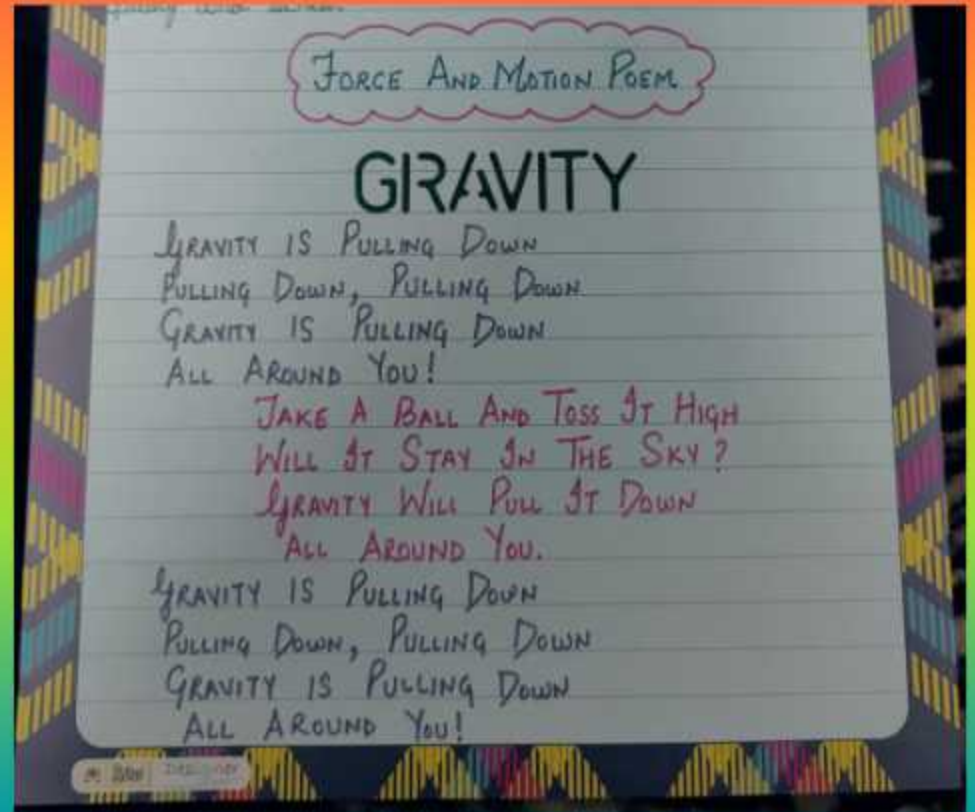 FORCE AND MOTION POEM
GRAVITY
GRAVITY IS PULLING DOWN
PULLING DOWN, PULLING DOWN
GRAVITY IS PULLING DOWN
ALL AROUND YOU!
TAKE A BALL AND TOSS IT HIGH
WILL IT STAY IN THE SKY?
GRAVITY WILL PULL IT DOWN
ALL AROUND YOU.
GRAVITY IS PULLING DOWN
PULLING DOWN, PULLING DOWN
GRAVITY IS PULLING DOWN
ALL AROUND YOU!